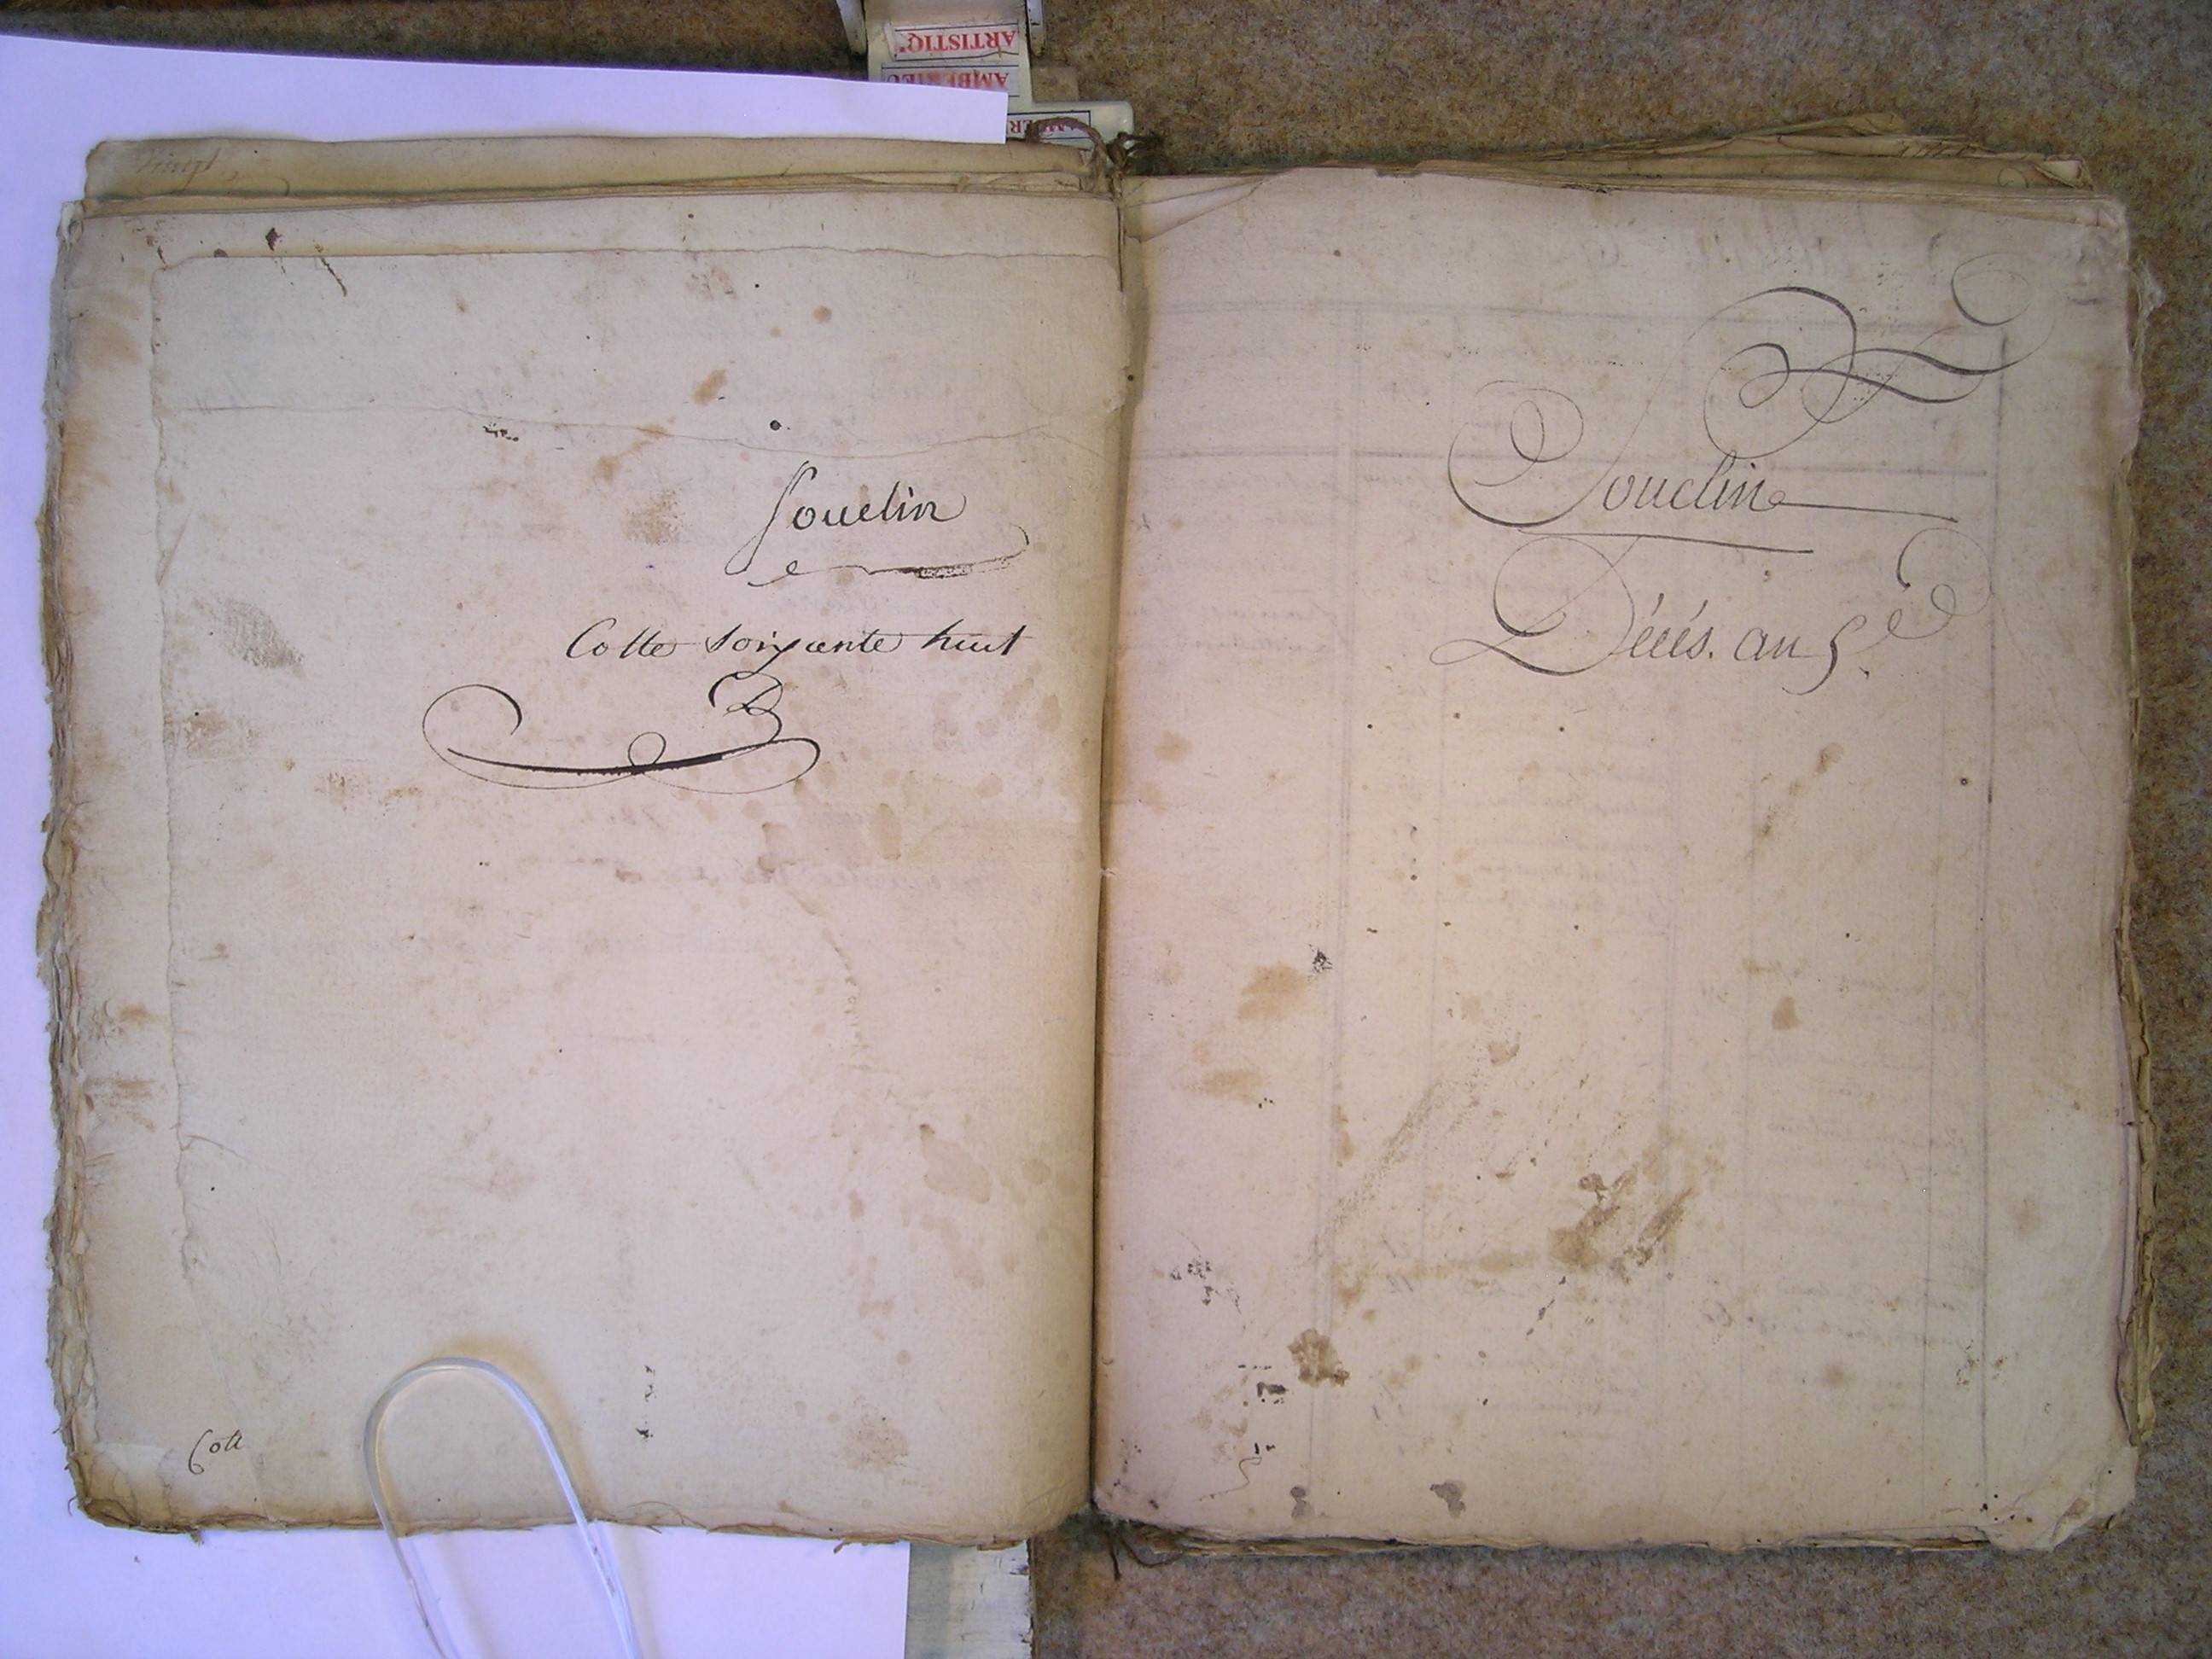 ARTISTIQ'
Vingt
Souclin
Cotte soixante huit
Cott
Souclin
Décés. an 5.e